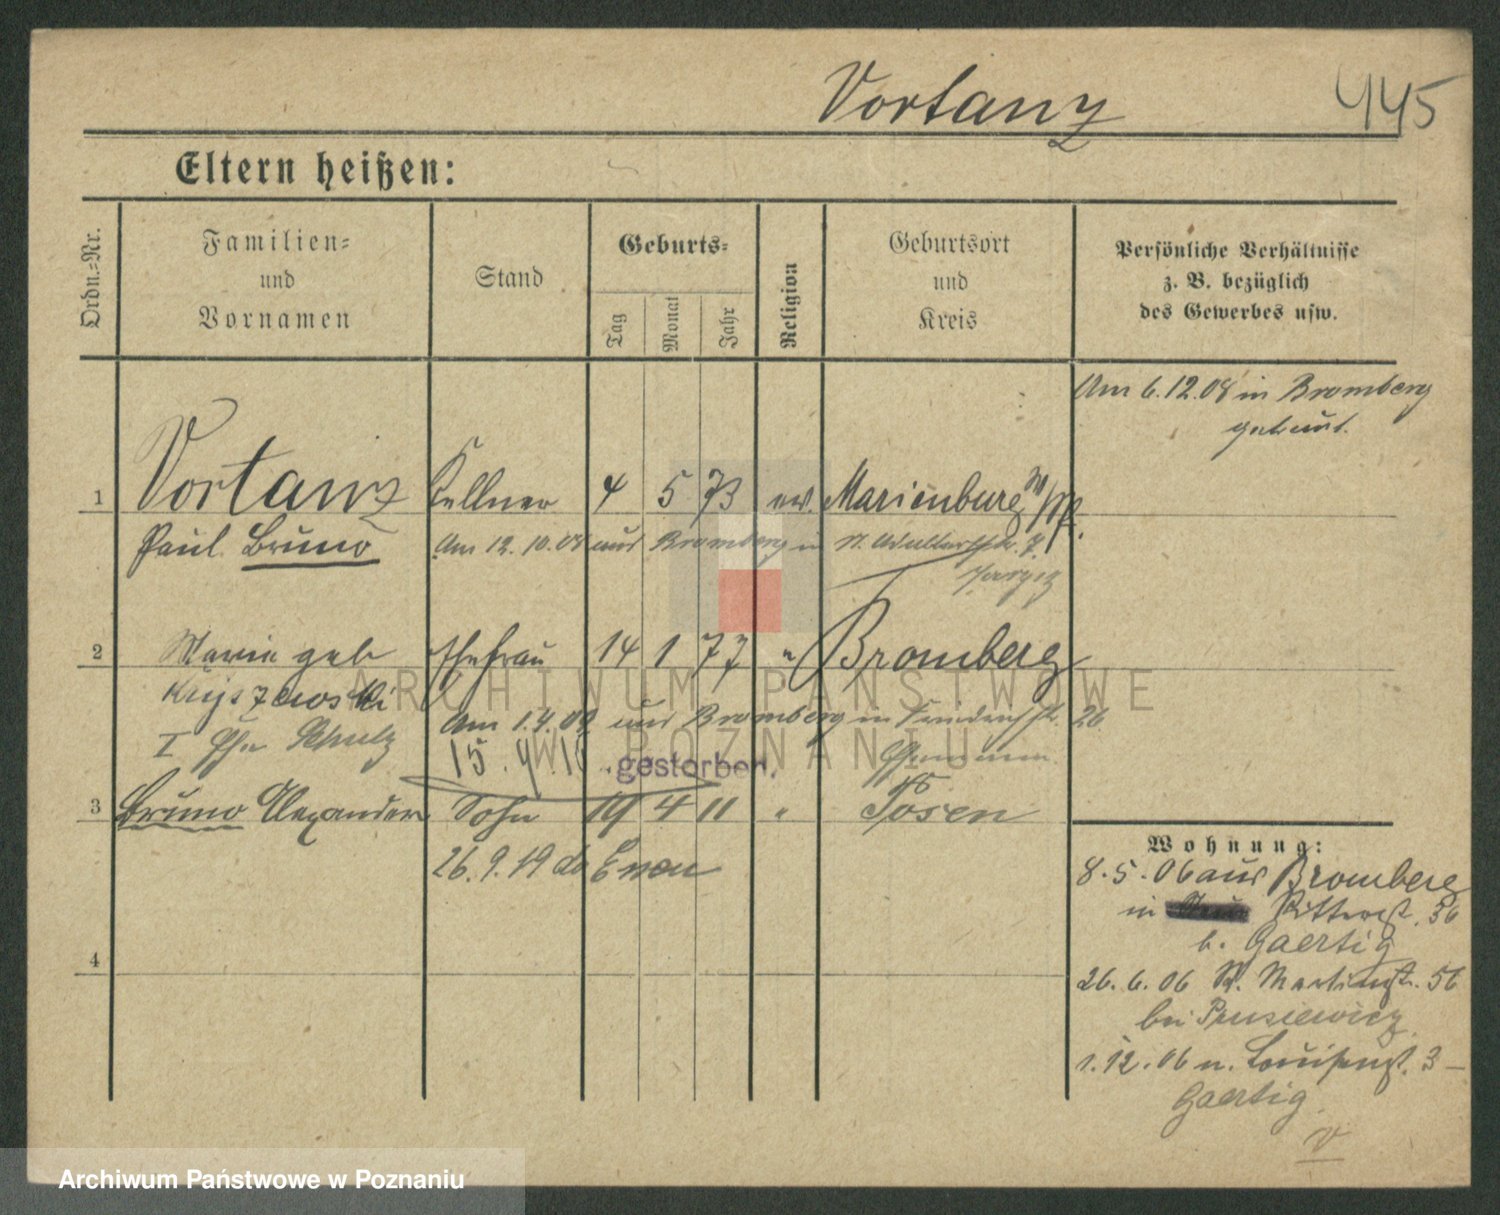 Vortanz
445
Eltern heißen:
Ordn.-Nr.
Familien-
und
Vornamen
Stand
Geburts-
Tag
Monat
Jahr
Religion
Geburtsort
und
Kreis
Persönliche Verhältnisse
z. B. bezüglich
des Gewerbes usw.
Am 6.12.08 in Bromberg
getraut.
1 Vortanz Kellner 4 5 73 ev. Marienburg W/Pr.
Paul Bruno Am 12.10.08 aus Bromberg in
2 Maria geb Ehefrau 14 1 77 " Bromberg
Am 1.4.09 aus Bromberg in 26
I Ehe Schulz 15.4.1 gestorben. Ehemann
3 Bruno Alexander Sohn 19 4 11 " Posen
26.9.19 ab
4
Wohnung:
8.5.06 aus Bromberg
in Ritterst. 36
b. Gaertig
26.6.06 St. Martinst. 56
bei Prusiewicz
1.12.06 n. Louisenst. 3 –
Gaertig
V
ARCHIWUM PAŃSTWOWE
W POZNANIU
Archiwum Państwowe w Poznaniu